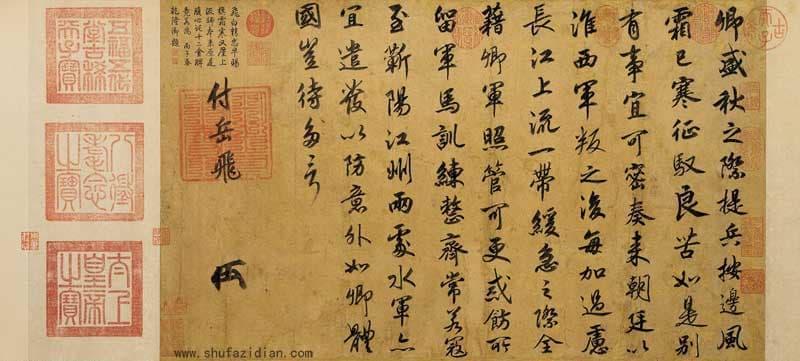 卿盛秋之際提兵按邊風
霜已寒征馭良苦如是別
有事宜可密奏來朝廷以
淮西軍叛之後每加過慮
長江上流一帶緩急之際全
藉卿軍照管可更戒飭所
留軍馬訓練整齊常若寇
至蘄陽江州兩處水軍亦
宜遣發以防意外如卿體
國豈待多言
付岳飛
乾隆御題
五福五代堂古稀天子寶
八徵耄念之寶
太上皇帝之寶
www.shufazidian.com